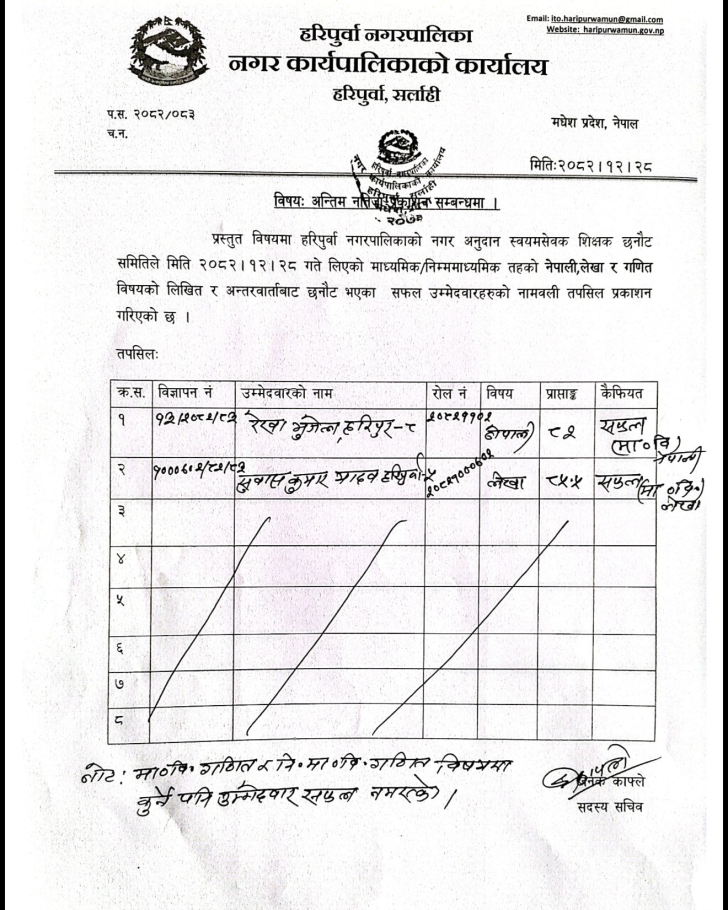 Email: ito.haripurwamun@gmail.com
Website: haripurwamun.gov.np
हरिपुर्वा नगरपालिका
नगर कार्यपालिकाको कार्यालय
हरिपुर्वा, सर्लाही
प.स. २०८२/०८३
च.न.
मधेश प्रदेश, नेपाल
मिति:२०८२।१२।२८
हरिपुर्वा नगरपालिका
नगर कार्यपालिकाको कार्यालय
हरिपुर्वा, सर्लाही
२०७३
विषय: अन्तिम नतिजा प्रकाशन सम्बन्धमा ।
प्रस्तुत विषयमा हरिपुर्वा नगरपालिकाको नगर अनुदान स्वयमसेवक शिक्षक छनौट
समितिले मिति २०८२।१२।२८ गते लिएको माध्यमिक/निम्ममाध्यमिक तहको नेपाली,लेखा र गणित
विषयको लिखित र अन्तरवार्ताबाट छनौट भएका सफल उम्मेदवारहरुको नामवली तपसिल प्रकाशन
गरिएको छ ।
तपसिलः
क्र.स. विज्ञापन नं उम्मेदवारको नाम रोल नं विषय प्राप्ताङ्क कैफियत
१ रेखा हरिपुर-८ नेपाली ८२ सफल (मा०वि) नेपाली
२ सुवास कुमार यादव लेखा ८५.५ सफल (मा०वि०) लेखा
३
४
५
६
७
८
नोट: मा०वि० गणित र नि०मा०वि० गणित विषयमा
कुनै पनि उम्मेदवार सफल नभएको ।
जनक काफ्ले
सदस्य सचिव